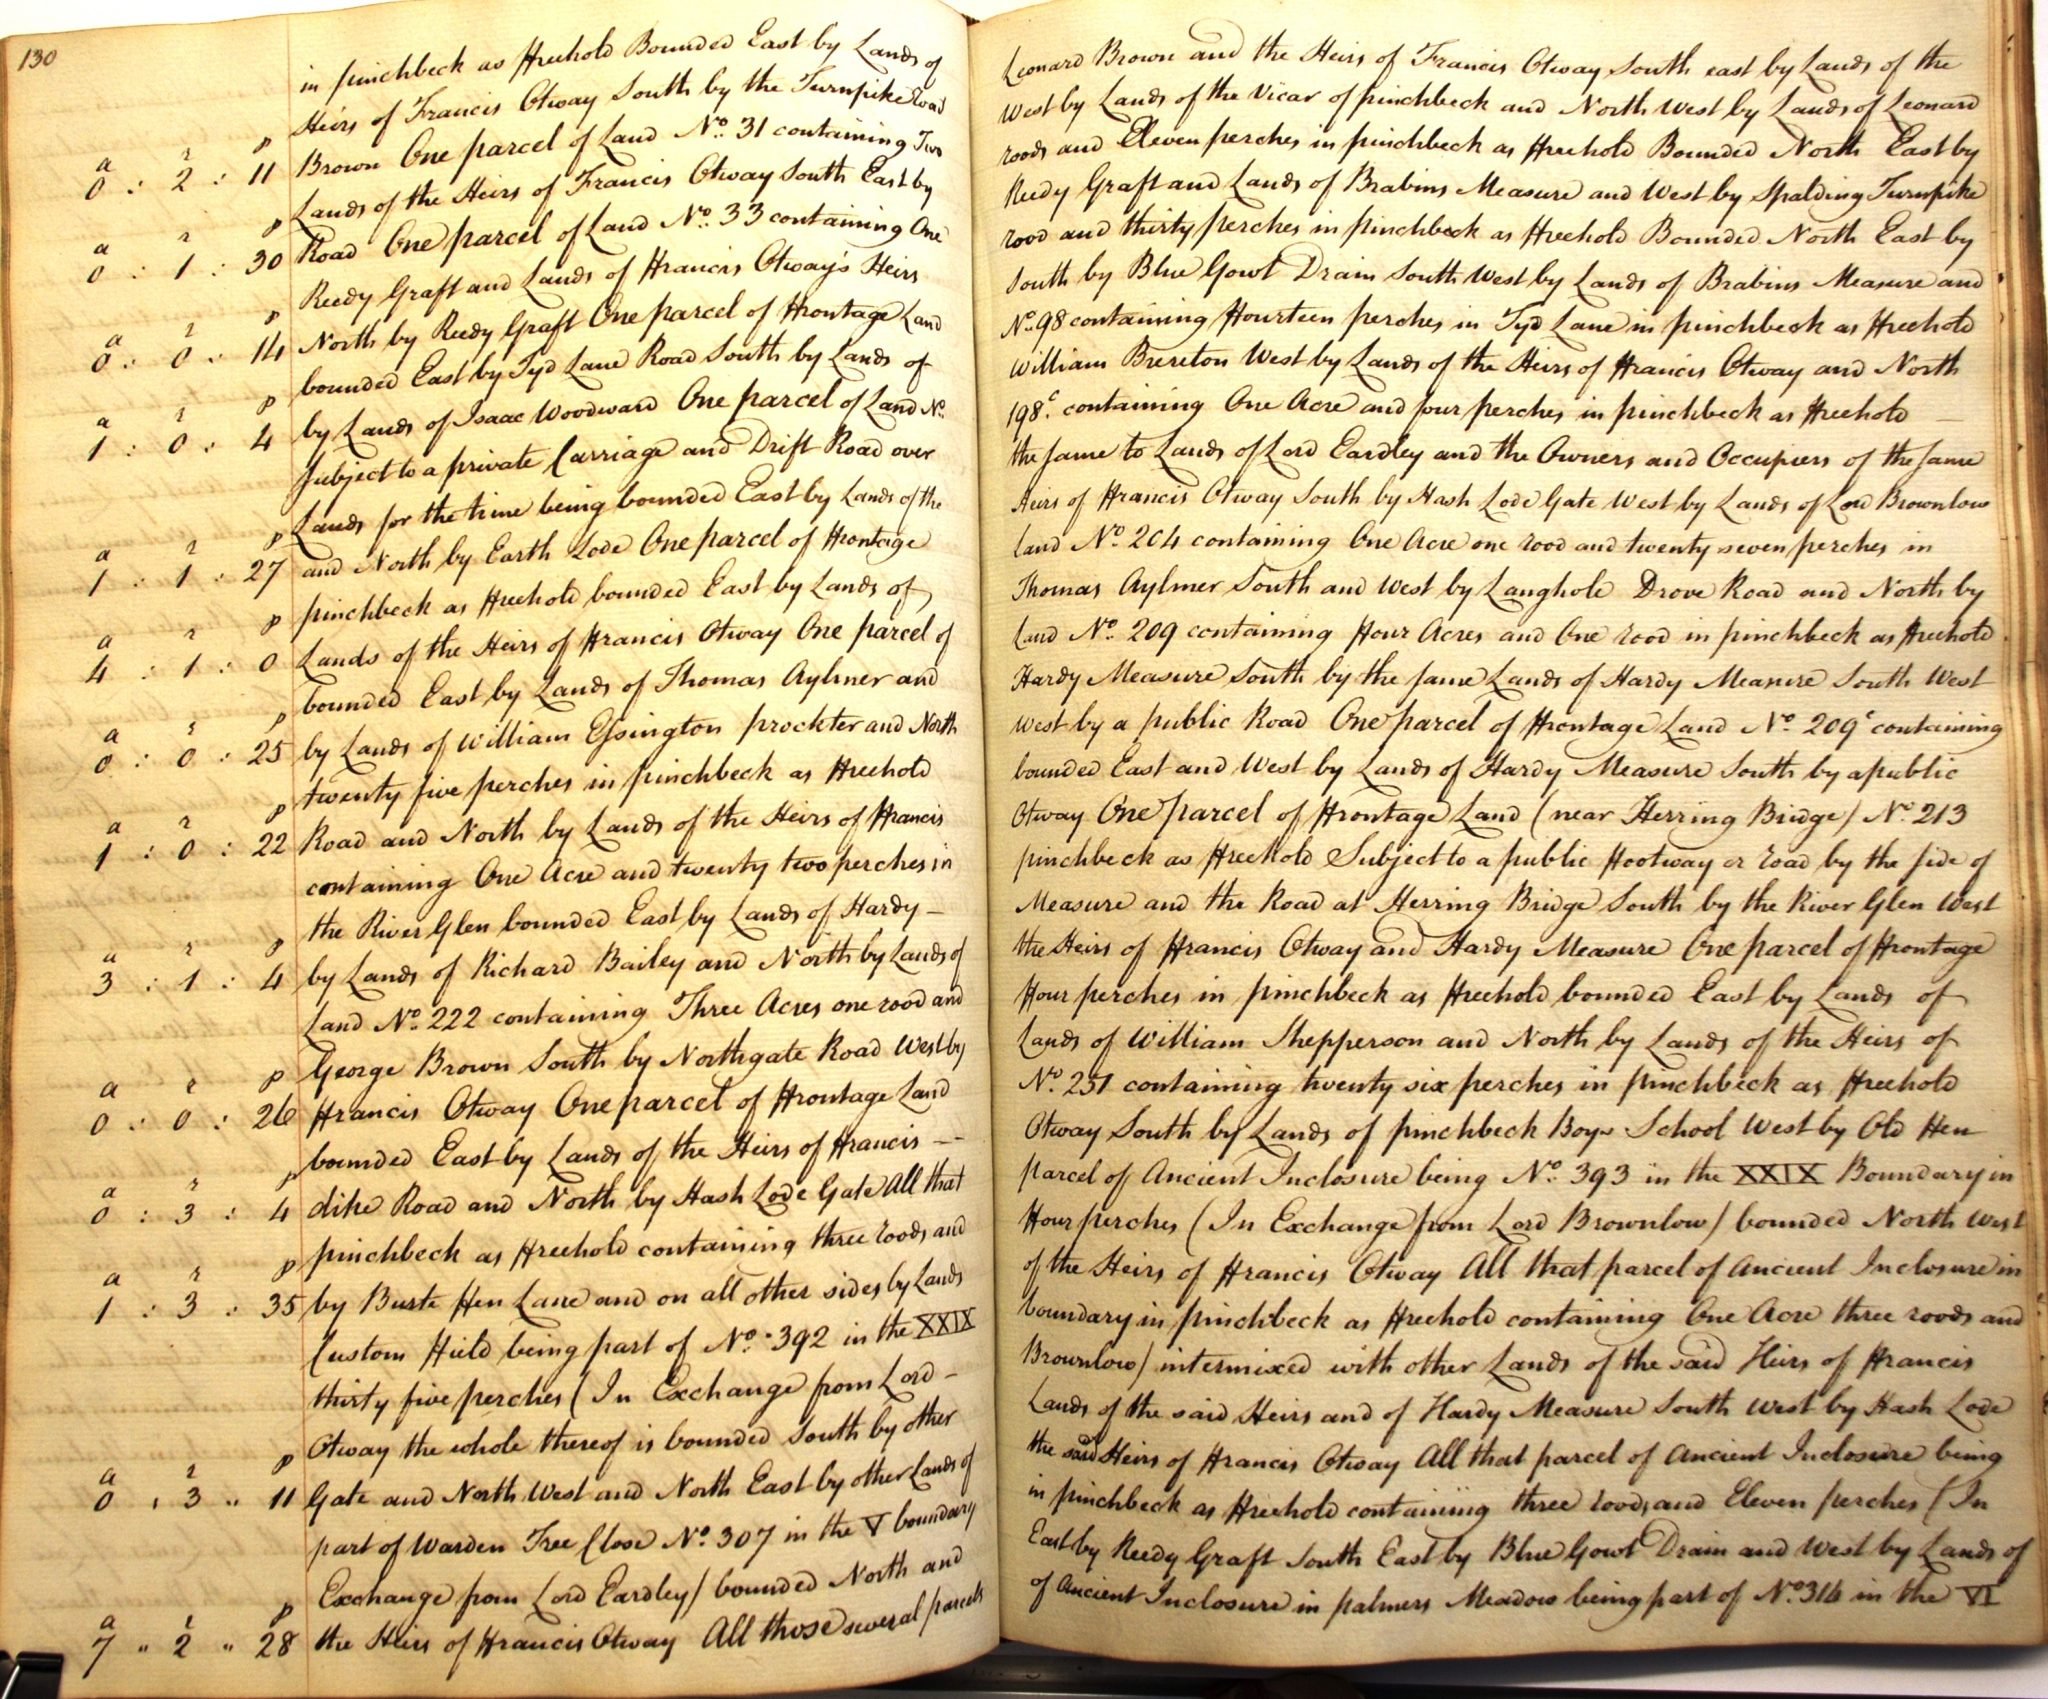 130
in pinchbeck as Freehold Bounded East by Lands of Leonard Brown and the Heirs of Francis Otway South east by Lands of the
Heirs of Francis Otway South by the Turnpike Road West by Lands of the Vicar of pinchbeck and North West by Lands of Leonard
a r p
0 : 2 : 11 Brown One parcel of Land No. 31 containing Two roods and Eleven perches in pinchbeck as Freehold Bounded North East by
Lands of the Heirs of Francis Otway South East by Reedy Graft and Lands of Brabins Measure and West by Spalding Turnpike
a r p
0 : 1 : 30 Road One parcel of Land No. 33 containing One rood and thirty perches in pinchbeck as Freehold Bounded North East by
Reedy Graft and Lands of Francis Otway's Heirs South by Blue Gowt Drain South West by Lands of Brabins Measure and
a r p
0 : 0 : 14 North by Reedy Graft One parcel of Frontage Land No. 98 containing Fourteen perches in Tyd Lane in pinchbeck as Freehold
bounded East by Tyd Lane Road South by Lands of William Brereton West by Lands of the Heirs of Francis Otway and North
a r p
1 : 0 : 4 by Lands of Isaac Woodward One parcel of Land No. 198c. containing One Acre and four perches in pinchbeck as Freehold —
Subject to a private Carriage and Drift Road over the same to Lands of Lord Eardley and the Owners and Occupiers of the same
Lands for the time being bounded East by Lands of the Heirs of Francis Otway South by Hash Lode Gate West by Lands of Lord Brownlow
a r p
1 : 1 : 27 and North by Earth Lode One parcel of Frontage land No. 204 containing One Acre one rood and twenty seven perches in
pinchbeck as Freehold bounded East by Lands of Thomas Aylmer South and West by Langhole Drove Road and North by
a r p
4 : 1 : 0 Lands of the Heirs of Francis Otway One parcel of Land No. 209 containing Four Acres and One rood in pinchbeck as Freehold
bounded East by Lands of Thomas Aylmer and Hardy Measure South by the same Lands of Hardy Measure South West
a r p
0 : 0 : 25 by Lands of William Essington prockter and North West by a public Road One parcel of Frontage Land No. 209c containing
twenty five perches in pinchbeck as Freehold bounded East and West by Lands of Hardy Measure South by a public
a r p
1 : 0 : 22 Road and North by Lands of the Heirs of Francis Otway One parcel of Frontage Land (near Herring Bridge) No. 213
containing One Acre and twenty two perches in pinchbeck as Freehold Subject to a public Footway or road by the side of
the River Glen bounded East by Lands of Hardy – Measure and the Road at Herring Bridge South by the River Glen West
a r p
3 : 1 : 4 by Lands of Richard Bailey and North by Lands of the Heirs of Francis Otway and Hardy Measure One parcel of Frontage
Land No. 222 containing Three Acres one rood and Four perches in pinchbeck as Freehold bounded East by Lands of
George Brown South by Northgate Road West by Lands of William Shepperson and North by Lands of the Heirs of
a r p
0 : 0 : 26 Francis Otway One parcel of Frontage Land No. 251 containing twenty six perches in pinchbeck as Freehold
bounded East by Lands of the Heirs of Francis -- Otway South by Lands of pinchbeck Boys School West by Old Fen
a r p
0 : 3 : 4 dike Road and North by Hash Lode Gate All that parcel of Ancient Inclosure being No. 393 in the XXIX Boundary in
pinchbeck as Freehold containing three roods and Four perches (In Exchange from Lord Brownlow) bounded North West
a r p
1 : 3 : 35 by Burte Fen Lane and on all other sides by Lands of the Heirs of Francis Otway All that parcel of Ancient Inclosure in
Custom Field being part of No. 392 in the XXIX boundary in pinchbeck as Freehold containing One Acre three roods and
thirty five perches (In Exchange from Lord – Brownlow) intermixed with other Lands of the said Heirs of Francis
Otway the whole thereof is bounded South by other Lands of the said Heirs and of Hardy Measure South West by Hash Lode
a r p
0 , 3 " 11 Gate and North West and North East by other Lands of the said Heirs of Francis Otway All that parcel of Ancient Inclosure being
part of Warden Tree Close No. 307 in the V boundary in pinchbeck as Freehold containing three roods and Eleven perches (In
Exchange from Lord Eardley) bounded North and East by Reedy Graft South East by Blue Gowt Drain and West by Lands of
a r p
7 " 2 " 28 the Heirs of Francis Otway All those several parcels of Ancient Inclosure in palmers Meadow being part of No. 314 in the VI